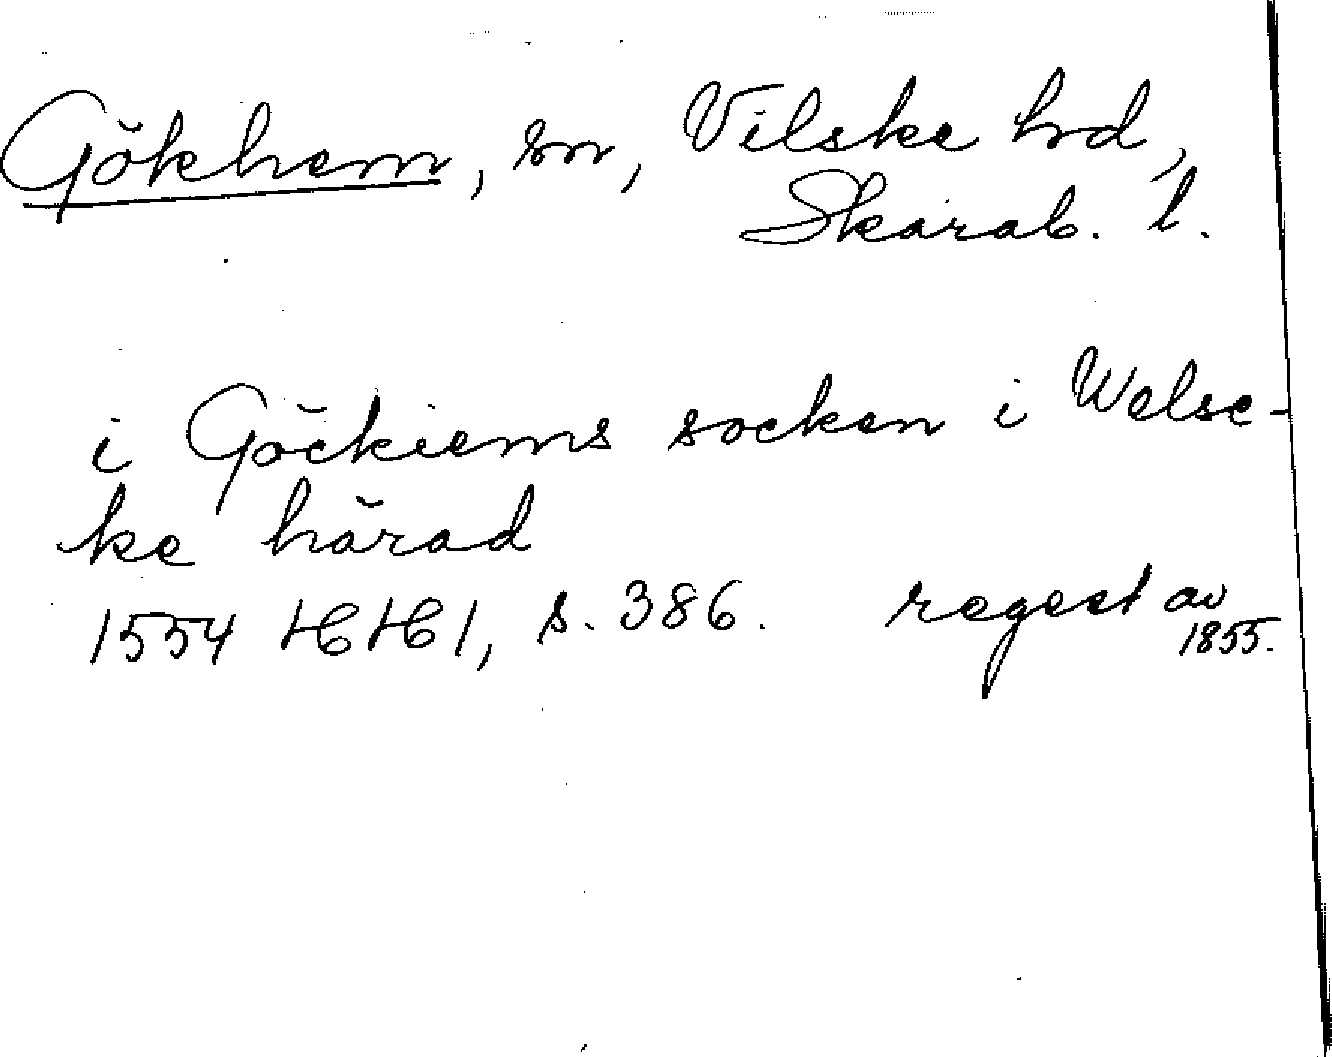 Gökhem, sn, Vilske hd,
Skarab. l.
i Göckiems socken i Welsc-
ke härad
1554 HH 1, s. 386. regest av
1855.